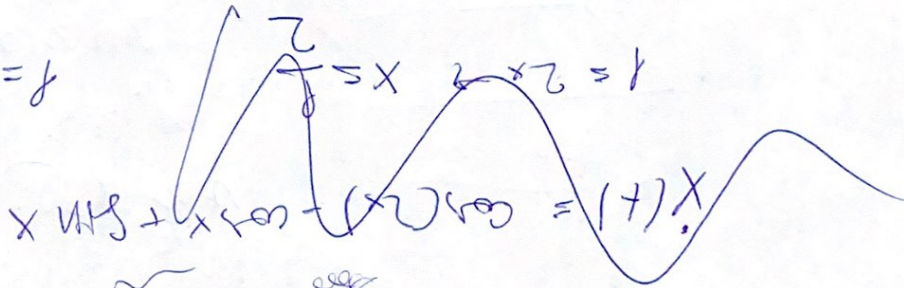 Ẋ(t) = cos(2x) - cos x + sin x
t = 2x x = t/2 t =